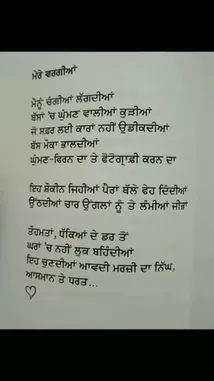 ਮੇਰੇ ਵਰਗੀਆਂ
ਮੈਨੂੰ ਚੰਗੀਆਂ ਲੱਗਦੀਆਂ
ਬੱਸਾਂ 'ਚ ਘੁੰਮਣ ਵਾਲੀਆਂ ਕੁੜੀਆਂ
ਜੋ ਸਫ਼ਰ ਲਈ ਕਾਰਾਂ ਨਹੀਂ ਉਡੀਕਦੀਆਂ
ਬੱਸ ਮੌਕਾ ਭਾਲਦੀਆਂ
ਘੁੰਮਣ-ਫਿਰਨ ਦਾ ਤੇ ਫੋਟੋਗ੍ਰਾਫ਼ੀ ਕਰਨ ਦਾ
ਇਹ ਸ਼ੌਕੀਨ ਜਿਹੀਆਂ ਪੈਰਾਂ ਥੱਲੇ ਫੇਹ ਦਿੰਦੀਆਂ
ਉੱਠਦੀਆਂ ਚਾਰ ਉਂਗਲਾਂ ਨੂੰ ਤੇ ਲੰਮੀਆਂ ਜੀਭਾਂ
ਤੋਹਮਤਾਂ, ਧੱਕਿਆਂ ਦੇ ਡਰ ਤੋਂ
ਘਰਾਂ 'ਚ ਨਹੀਂ ਲੁਕ ਬਹਿੰਦੀਆਂ
ਇਹ ਚੁਣਦੀਆਂ ਆਵਦੀ ਮਰਜ਼ੀ ਦਾ ਨਿੱਘ,
ਆਸਮਾਨ ਤੇ ਧਰਤ...